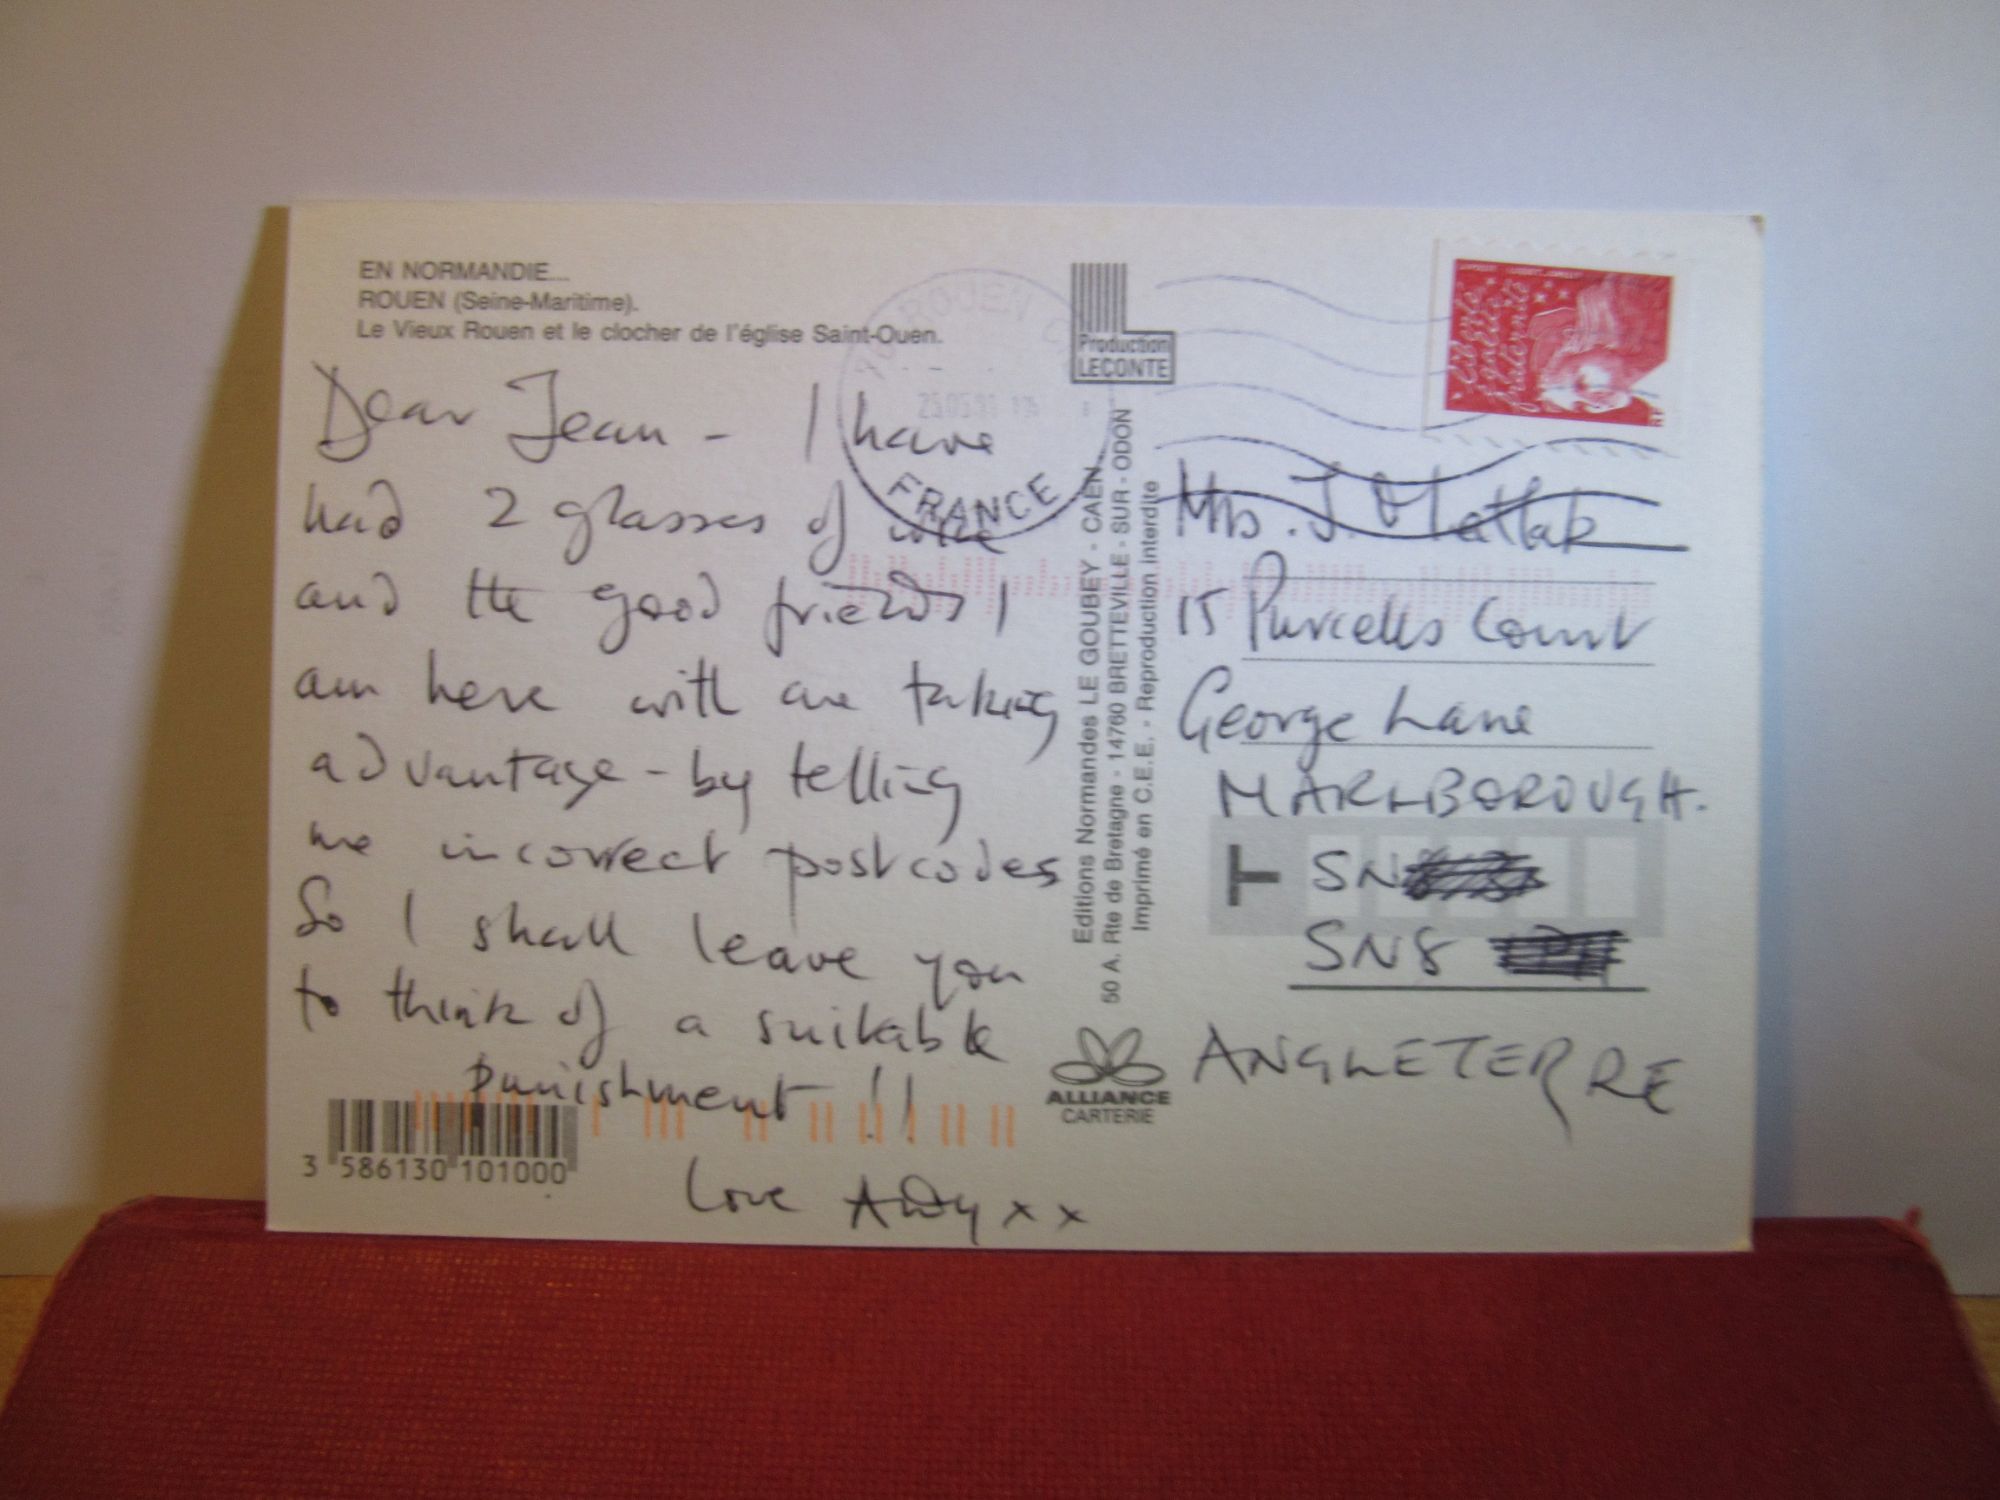 EN NORMANDIE...
ROUEN (Seine-Maritime).
Le Vieux Rouen et le clocher de l'église Saint-Ouen.
Dear Jean - I have
had 2 glasses of wine
and the good friends I
am here with are taking
advantage - by telling
me incorrect postcodes
So I shall leave you
to think of a suitable
punishment !!
Love Andy x x
3 586130 101000
ROUEN
25.05.9
FRANCE
Production
LECONTE
Editions Normandes LE GOUBEY - CAEN
50 A. Rte de Bretagne - 14760 BRETTEVILLE - SUR - ODON
Imprimé en C.E.E. - Reproduction interdite
ALLIANCE
CARTERIE
Liberté
égalité
fraternité
Mrs. J. Matlab
15 Purcells Court
George Lane
MARLBOROUGH.
T SN
SN8
ANGLETERRE